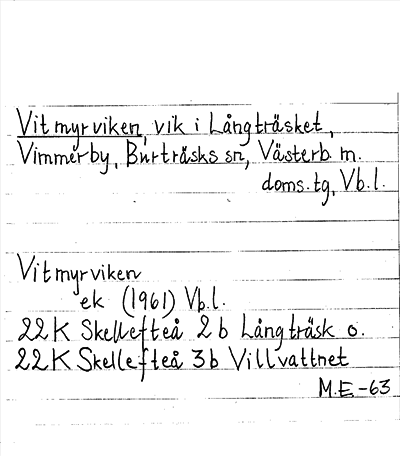 Vitmyrviken, vik i Långträsket,
Vimmerby, Burträsks sn, Västerb. m.
doms. tg, Vb. l.
Vitmyrviken
ek (1961) Vb. l.
22K Skellefteå 2b Långträsk o.
22K Skellefteå 3b Villvattnet
M.E-63